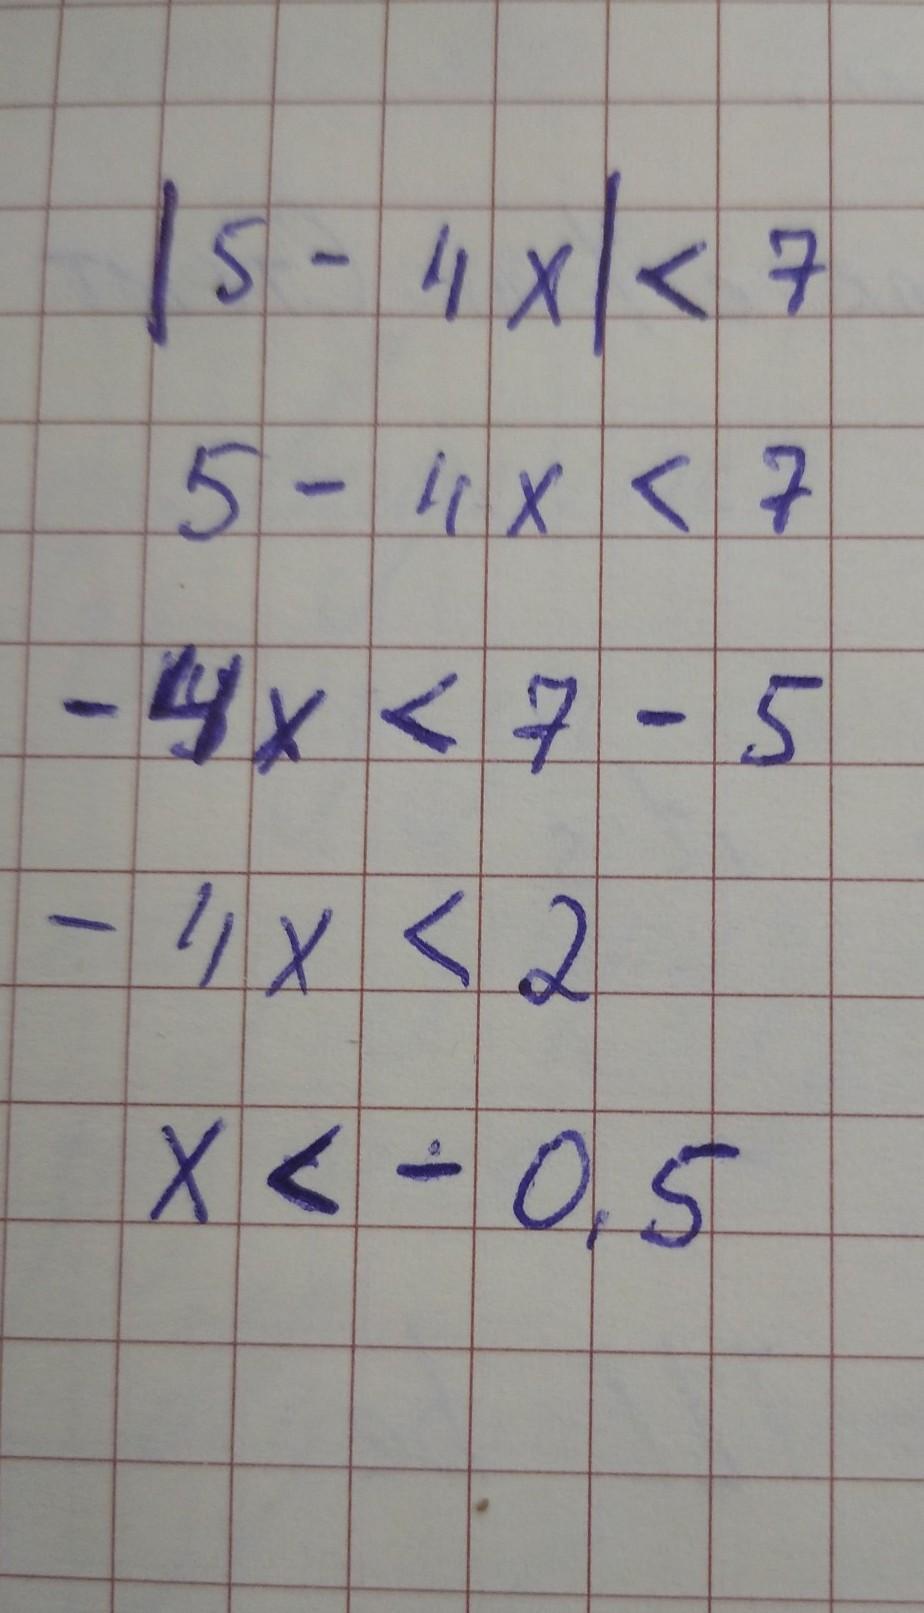 |5 - 4x| < 7
5 - 4x < 7
- 4x < 7 - 5
- 4x < 2
x < - 0,5